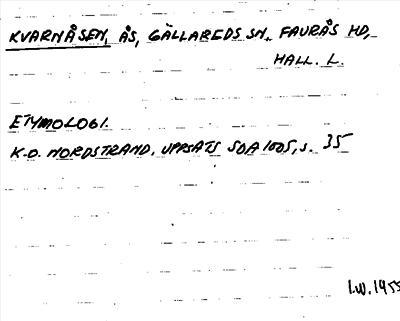 KVARNÅSEN, ÅS, GÄLLAREDS SN. FAURÅS HD,
HALL. L.
ETYMOLOGI.
K-O. NORDSTRAND. UPPSATS SOA 1005, s. 35
I.W. 1955